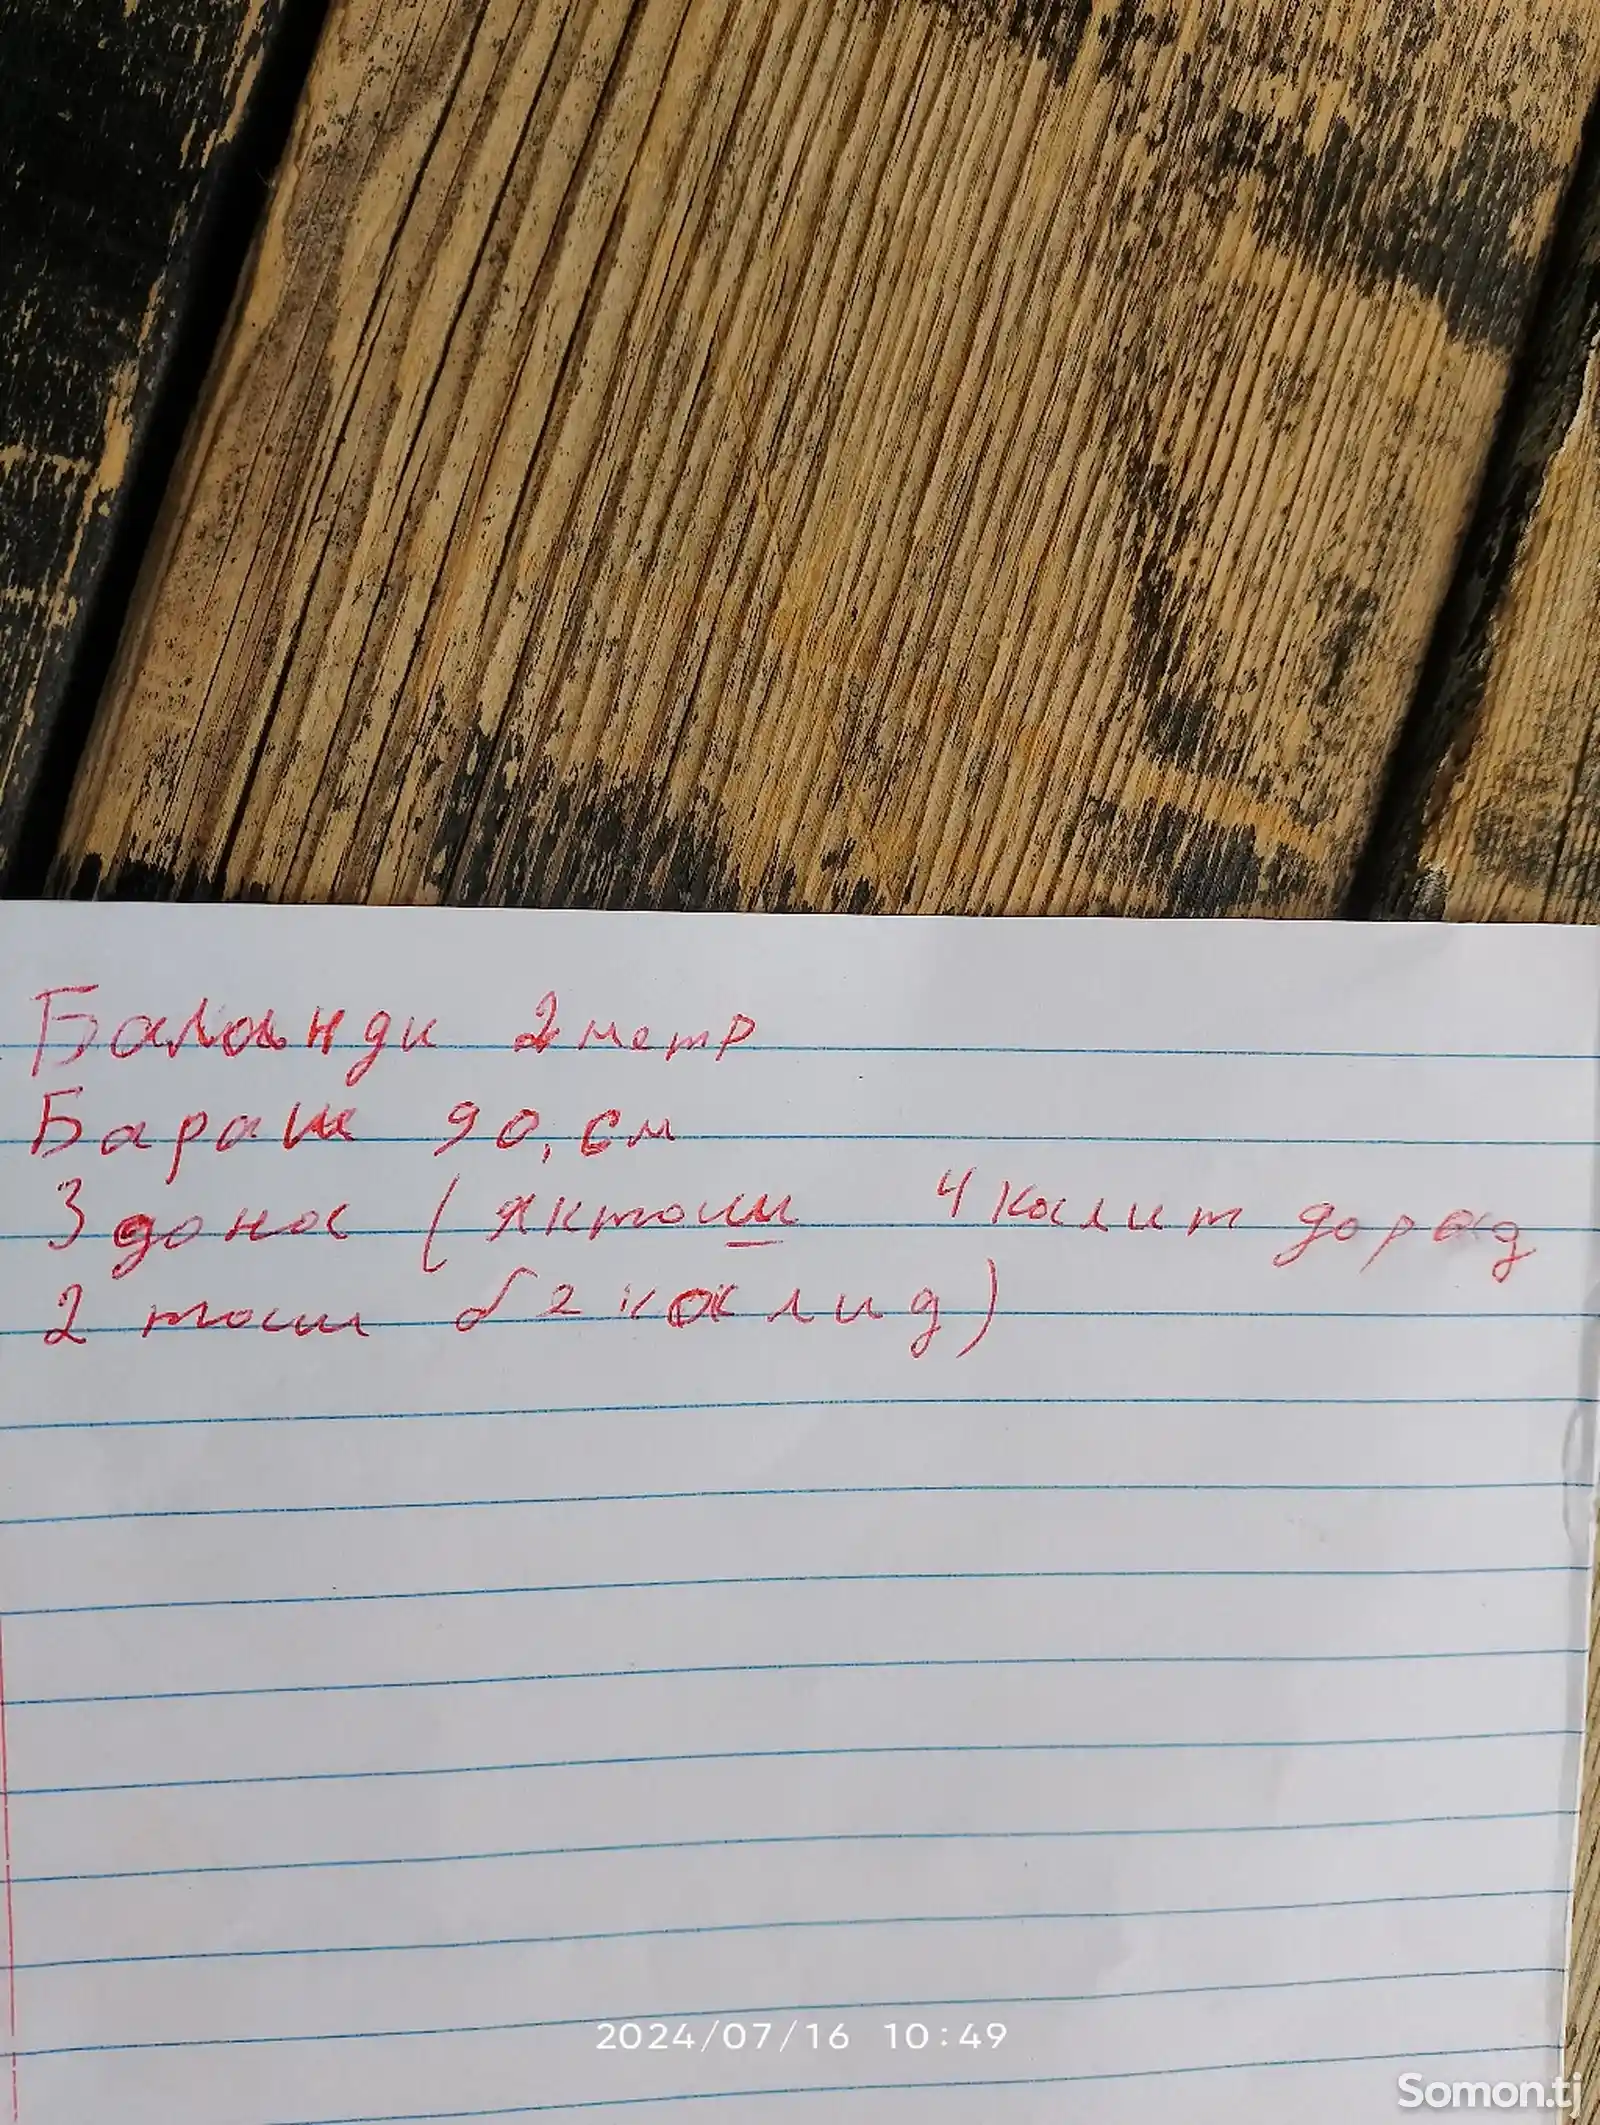 Баланди 2 метр
Бараш 90, см
3 дона (якташ 4 калит дорад
2 таш б2 калид)
2024/07/16 10:49
Somon.tj